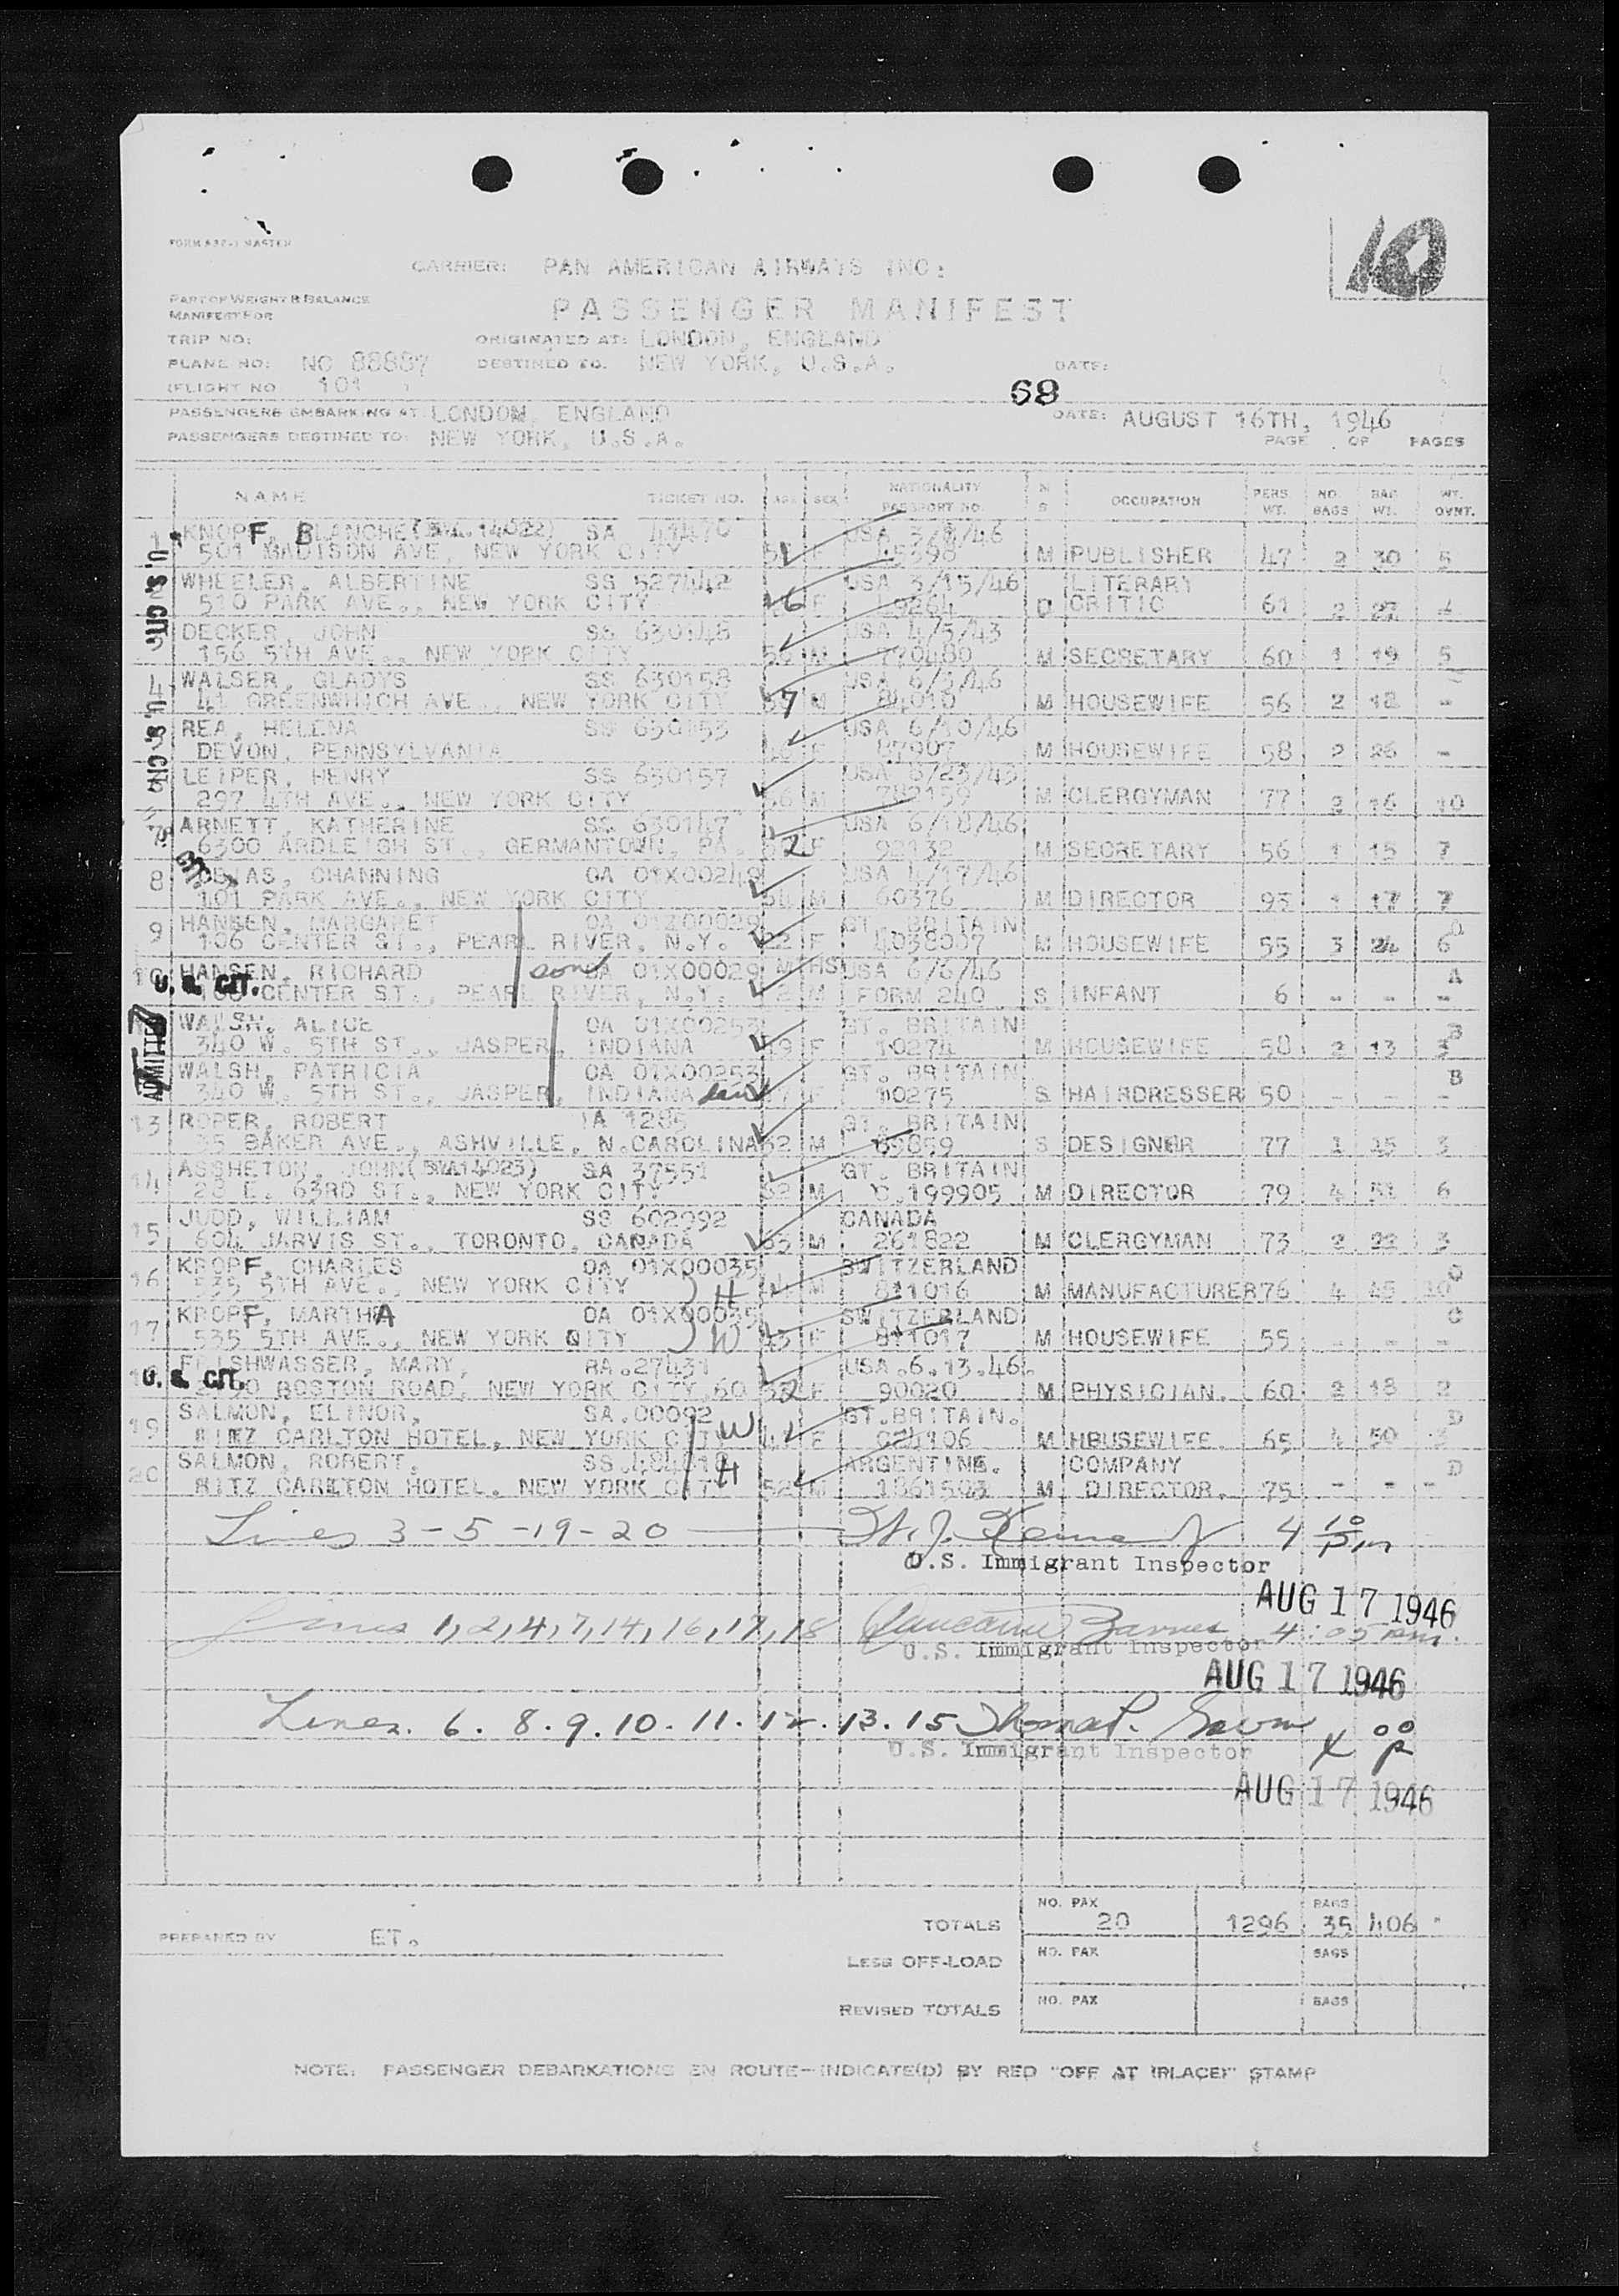 FORM 837-1 MASTER
10
CARRIER: PAN AMERICAN AIRWAYS INC:
PART OF WEIGHT & BALANCE
MANIFEST FOR
PASSENGER MANIFEST
TRIP NO: ORIGINATED AT: LONDON, ENGLAND
PLANE NO: NC 88887 DESTINED TO. NEW YORK, U.S.A. DATE:
(FLIGHT NO 101 )
68
PASSENGERS EMBARKING AT: LONDON, ENGLAND DATE: AUGUST 16TH, 1946
PASSENGERS DESTINED TO: NEW YORK, U.S.A. PAGE OF PAGES
NAME TICKET NO. AGE SEX NATIONALITY PASSPORT NO. M S OCCUPATION PERS. WT. NO. BAGS BAG WT. WT. OVNT.
1 KNOPF, BLANCHE SA USA 3/8/46
501 MADISON AVE, NEW YORK CITY F 45398 M PUBLISHER 47 2 30 5
WHEELER, ALBERTINE SS 527442 USA 3/15/46 LITERARY
510 PARK AVE., NEW YORK CITY 6 F 9264 D CRITIC 61 2 27
DECKER, JOHN SS 630148 USA 4/5/43
156 5TH AVE., NEW YORK CITY M 770480 M SECRETARY 60 1 19 5
4 WALSER, GLADYS SS 630158 USA 6/3/46
41 GREENWHICH AVE., NEW YORK CITY 7 M 84010 M HOUSEWIFE 56 2 18 -
REA, HELENA SS 630153 USA 6/10/46
DEVON, PENNSYLVANIA F 87907 M HOUSEWIFE 58 2 26 -
LEIPER, HENRY SS 630157 USA 6/23/43
297 4TH AVE., NEW YORK CITY 56 M 782159 M CLERGYMAN 77 2 16 10
7 ARNETT, KATHERINE SS 630147 USA 6/18/46
6300 ARDLEIGH ST., GERMANTOWN, PA. 2 F 92132 M SECRETARY 56 1 15 7
8 TOBIAS, CHANNING OA 01X00249 USA 4/17/46
101 PARK AVE., NEW YORK CITY 64 M 60376 M DIRECTOR 93 1 17 7
9 HANSEN, MARGARET OA 01X00029 GT. BRITAIN A
106 CENTER ST., PEARL RIVER, N.Y. 22 F 4038007 M HOUSEWIFE 55 3 24 6
10 HANSEN, RICHARD son OA 01X00029 M HS USA 6/6/46 A
U. S. CIT. 106 CENTER ST., PEARL RIVER, N.Y. 2 M FORM 240 S INFANT 6 - - -
WALSH, ALICE OA 01X00253 GT. BRITAIN B
340 W. 5TH ST., JASPER, INDIANA 49 F 10274 M HOUSEWIFE 50 2 13 3
WALSH, PATRICIA OA 01X00253 GT. BRITAIN B
340 W. 5TH ST., JASPER, INDIANA F 10275 S HAIRDRESSER 50 - - -
ADMITTED
13 ROPER, ROBERT IA 1285 GT. BRITAIN
35 BAKER AVE., ASHVILLE, N.CAROLINA 32 M 69859 S DESIGNER 77 1 15 3
14 ASSHETON, JOHN (BWA14023) SA 37551 GT. BRITAIN
28 E. 63RD ST., NEW YORK CITY 52 M C.199905 M DIRECTOR 79 4 51 6
15 JUDD, WILLIAM SS 602092 CANADA
604 JARVIS ST., TORONTO, CANADA 63 M 261822 M CLERGYMAN 73 2 22 3
16 KROPF, CHARLES OA 01X00035 SWITZERLAND C
535 5TH AVE., NEW YORK CITY H M 811016 M MANUFACTURER 76 4 45 10
17 KROPF, MARTHA OA 01X00035 SWITZERLAND C
535 5TH AVE., NEW YORK CITY W 43 F 811017 M HOUSEWIFE 55 - - -
FLEISHWASSER, MARY, RA.27431 USA.6.13.46.
U. S. CIT. BOSTON ROAD, NEW YORK CITY.60 2 F 90020 M PHYSICIAN. 60 2 18 2
19 SALMON, ELINOR, SA.00092 GT.BRITAIN. D
RITZ CARLTON HOTEL, NEW YORK CITY W F M HOUSEWIFE 65 4 50 3
20 SALMON, ROBERT, ARGENTINE. COMPANY D
RITZ CARLTON HOTEL, NEW YORK CITY H 52 M M DIRECTOR. 75 - - -
Lines 3-5-19-20 4 10 pm
U.S. Immigrant Inspector
AUG 17 1946
Lines 1,2,4,7,14,16,17,18 4:05 pm.
U.S. Immigrant Inspector
AUG 17 1946
Lines. 6. 8. 9. 10. 11. 12. 13. 15 4 00 p
U.S. Immigrant Inspector
AUG 17 1946
TOTALS NO. PAX 20 1296 BAGS 35 406
PREPARED BY ET.
LESS OFF-LOAD NO. PAX BAGS
REVISED TOTALS NO. PAX BAGS
NOTE: PASSENGER DEBARKATIONS EN ROUTE-INDICATE(D) BY RED "OFF AT (PLACE)" STAMP